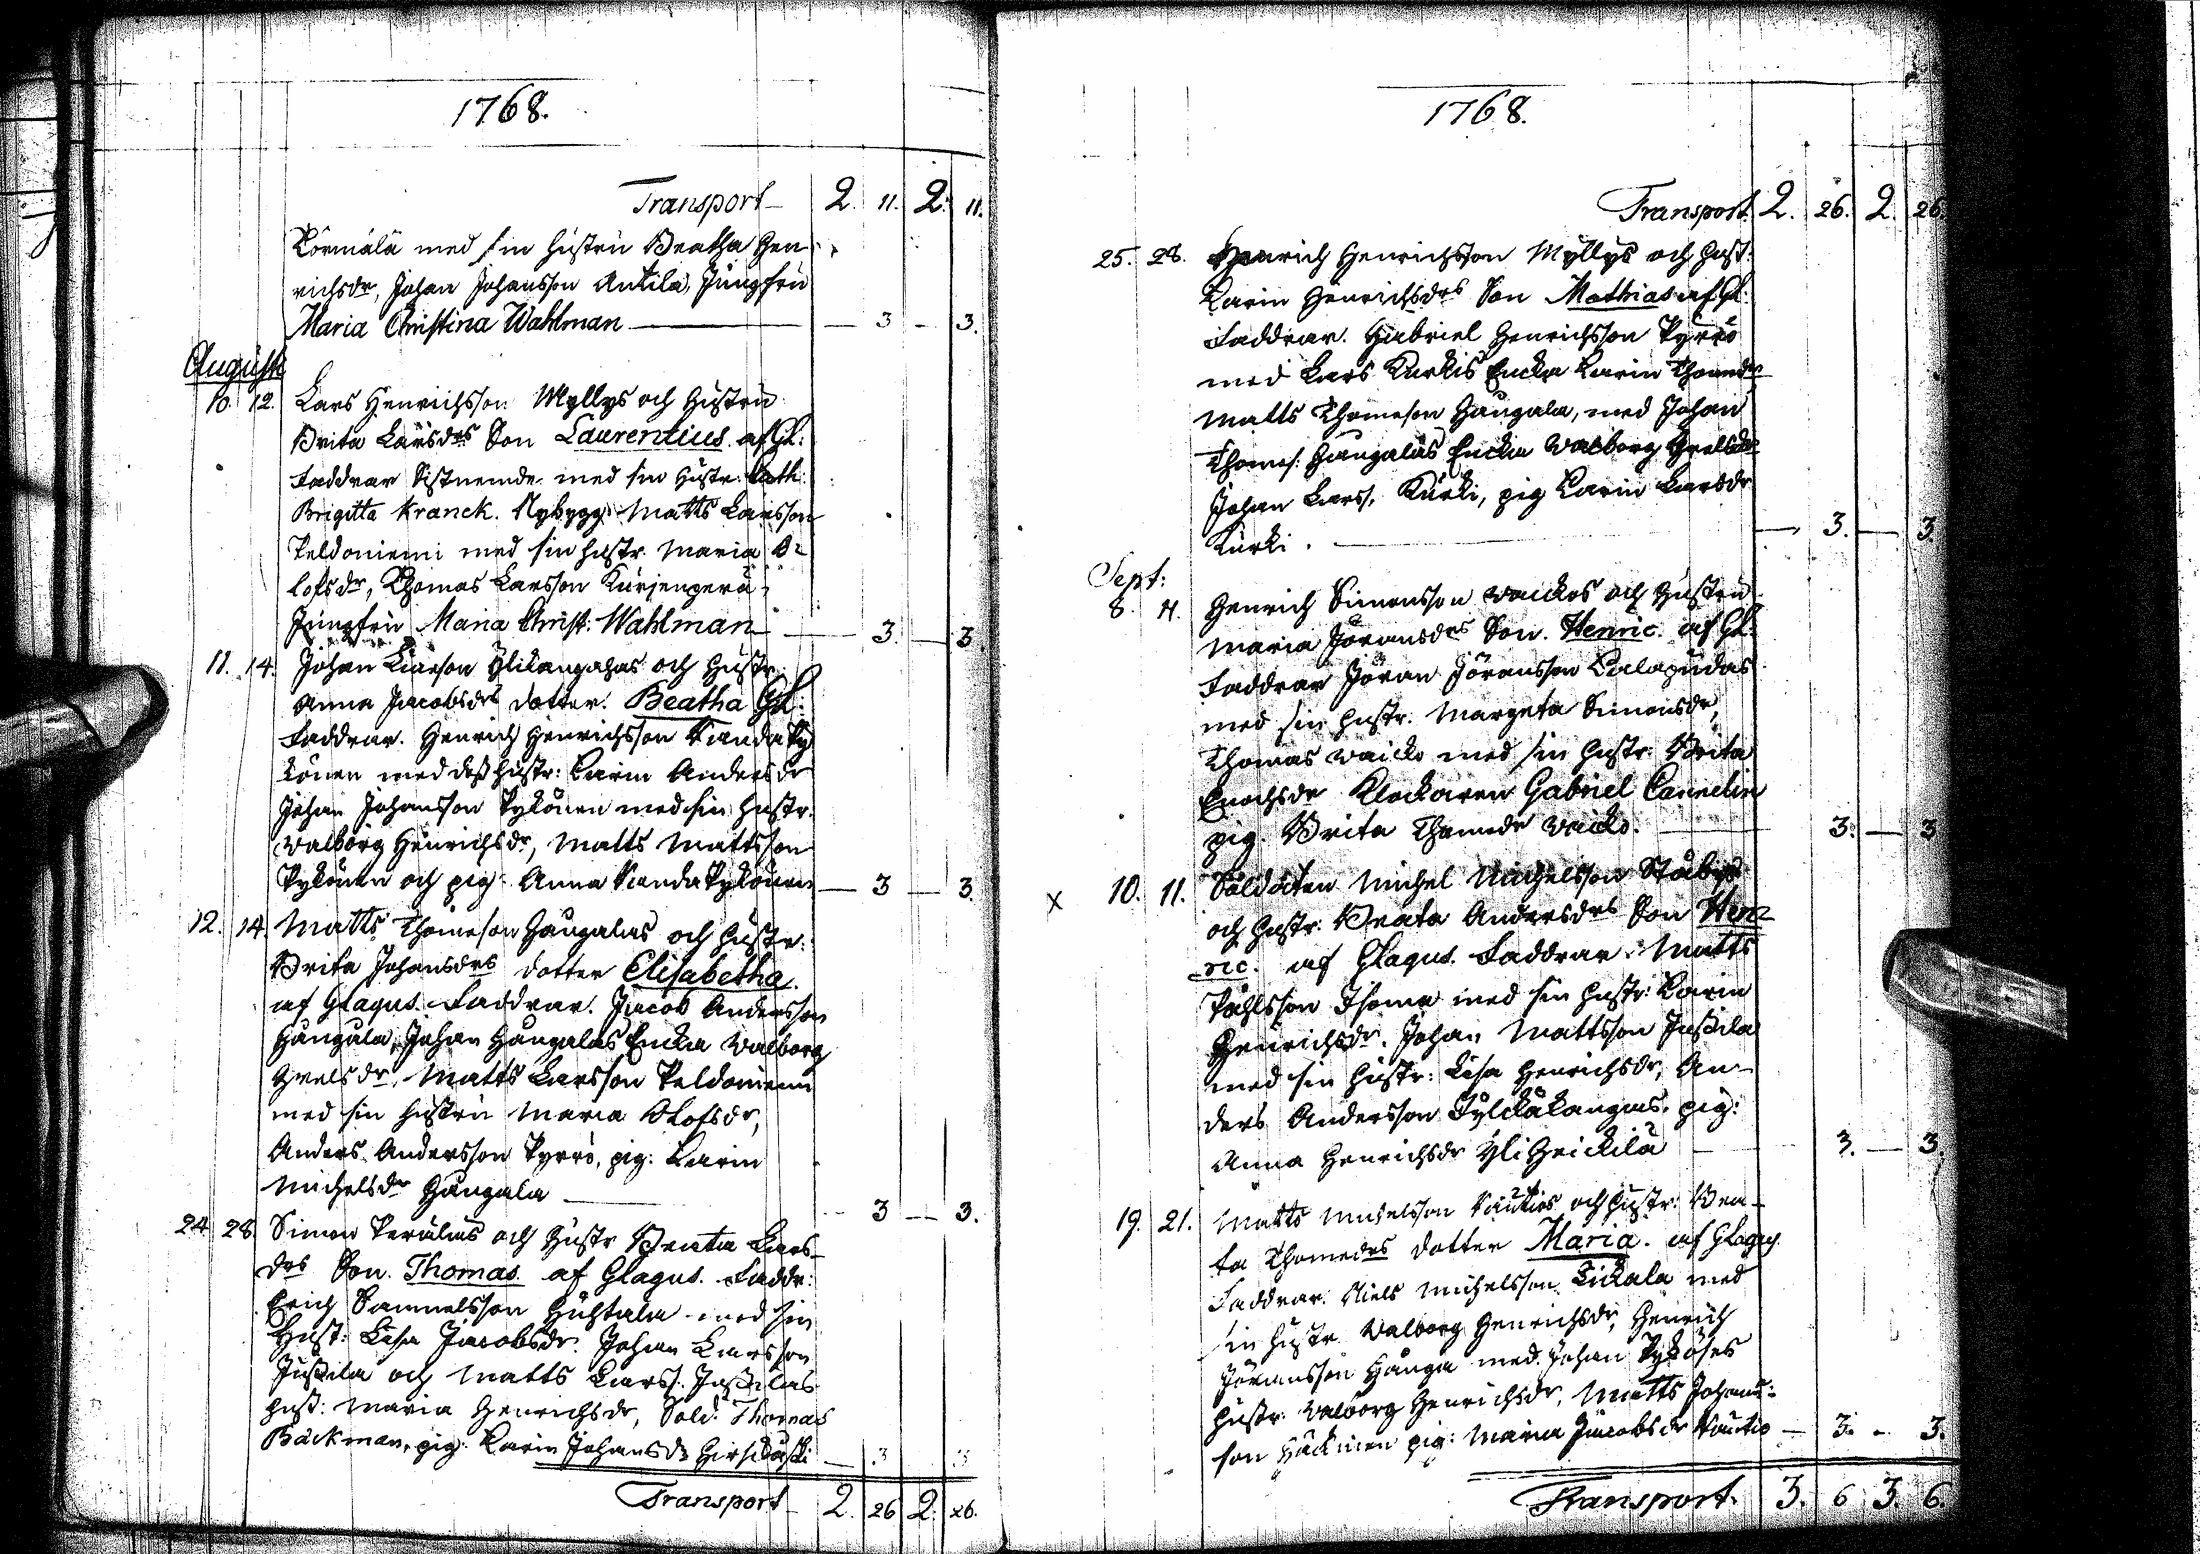 1768.
Transport 2. 11. 2. 11.
Körmälä med sin hustru Beatha Hen-
richsdr, Johan Johansson Antila, Jungfru
Maria Christina Wahlman — 3 - 3.
Augusti
10. 12. Lars Henrichsson Myllys och hustru
Brita Larsdrs Son Laurentius af Gl:
Faddrar Sistnemde med sin hustr: Cath:
Brigitta Kranck. Nybygg. Matts Larsson
Peldoniemi med sin hustr. Maria O=
lofsdr, Thomas Larsson Kurjenperä,
Jungfru Maria Christ: Wahlman — 3. — 3
11. 14. Johan Larson Ylikangahas och hustr.
Anna Jacobsdrs dotter. Beatha Gl.
Faddrar. Henrich Henrichsson Kanda Py
könen med dess hustr: Carin Andersdr
Johan Johansson Pykönen med sin hustr.
Walborg Henrichsdr, Matts Mattsson
Pykönen och pig: Anna Kanda Pykönen — 3 — 3.
12. 14. Matts Thomeson Haugalas och hustr:
Brita Johansdrs dotter Elisabetha.
af Glagus. Faddrar. Jacob Andersson
Haugala, Johan Haugalas Encka Walborg
Grelsdr, Matts Larsson Peldoniemi
med sin hustru Maria Olofsdr,
Anders Andersson Pyrrö, pig: Karin
Michelsdr Haugala — 3 — 3.
24 28. Simon Perälas och hustr Beata Lars-
drs Son. Thomas af Glagus. Faddr:
Erich Samuelsson Huhtala med sin
Hust: Lisa Jacobsdr. Johan Larsson
Jussila och Matts Larss. Jussilas
hust: Maria Henrichsdr, Sold. Thomas
Bäckman, pig: Karin Johansdr — 3 3
Transport 2. 26 2. 26.
1768.
Transport 2. 26. 2. 26
25. 28. Henrich Henrichsson Myllys och hust.
Karin Henrichsdrs Son Mathias af Gl.
Faddrar. Gabriel Henrichsson Pyrrö
med Lars Kurkis Encka Karin Thomedr
Matts Thomeson Haugala, med Johan
Thomes: Haugalas Encka Walborg Grelsdr
Johan Larss. Kurki, pig Carin Larsdr
Kurki. — 3. — 3
Sept:
8. 11. Henrich Simonsson Waickos och hustru
Maria Jöransdrs Son. Henric. af Gl.
Faddrar Jöran Jöransson Calapudas
med sin hustr. Margeta Simonsdr,
Thomas Waicko med sin hustr. Brita
Enochsdr Klockaren Gabriel Cannelin
pig. Brita Thomedr Waicko. 3. — 3
x 10. 11. Soldaten Michel Michelsson
och hustr. Beata Andersdrs Son Hen=
ric. af Glagus. Faddrar. Matts
Påhlsson Thoma med sin hustr: Karin
Henrichsdr. Johan Mattsson Jussila
med sin hustr: Lisa Henrichsdr, An-
ders Andersson pig:
Anna Henrichsdr Yli Heickilä — 3. — 3.
19. 21. Matts Michelsson Kautios och hustr: Bea-
ta Thomedrs dotter Maria. af Glagus.
Faddrar. Niels Michelsson med
sin hustr. Walborg Henrichsdr, Henrich
Jöransson Hauga med Johan Pykönes
hustr: Walborg Henrichsdr, Matts Johans-
son Häckinen pig: Maria Jacobsdr Kautio — 3. - 3.
Transport. 3. 6 3. 6.